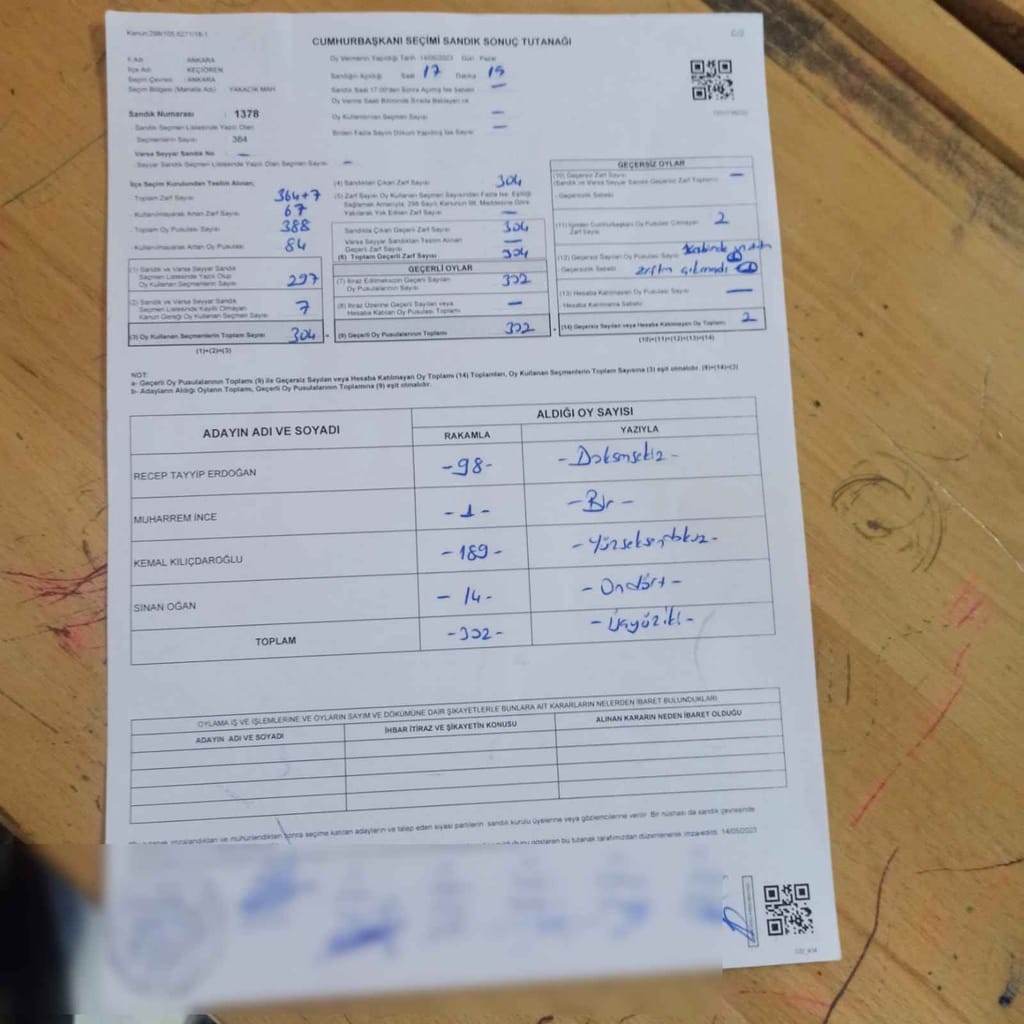 Kanun:298/105,6271/18-1
CUMHURBAŞKANI SEÇİMİ SANDIK SONUÇ TUTANAĞI
İl Adı : ANKARA
İlçe Adı : KEÇİÖREN
Seçim Çevresi : ANKARA
Seçim Bölgesi (Mahalle Adı) YAKACIK MAH
Sandık Numarası : 1378
Sandık Seçmen Listesinde Yazılı Olan
Seçmenlerin Sayısı : 364
Varsa Seyyar Sandık No —
Seyyar Sandık Seçmen Listesinde Yazılı Olan Seçmen Sayısı —
Oy Vermenin Yapıldığı Tarih 14/05/2023 Gün Pazar
Sandığın Açıldığı Saat 17 Dakika 15
Sandık Saat 17.00'den Sonra Açılmış İse Sebebi —
Oy Verme Saati Bitiminde Sırada Bekleyen ve
Oy Kullandırılan Seçmen Sayısı —
Birden Fazla Sayım Döküm Yapılmış İse Sayısı —
İlçe Seçim Kurulundan Teslim Alınan;
- Toplam Zarf Sayısı 364+7
- Kullanılmayarak Artan Zarf Sayısı 67
- Toplam Oy Pusulası Sayısı 388
- Kullanılmayarak Artan Oy Pusulası 84
(1) Sandık ve Varsa Seyyar Sandık
Seçmen Listesinde Yazılı Olup
Oy Kullanan Seçmenlerin Sayısı 297
(2) Sandık ve Varsa Seyyar Sandık
Seçmen Listesinde Kayıtlı Olmayan
Kanun Gereği Oy Kullanan Seçmen Sayısı 7
(3) Oy Kullanan Seçmenlerin Toplam Sayısı 304
(1)+(2)=(3)
(4) Sandıktan Çıkan Zarf Sayısı 304
(5) Zarf Sayısı Oy Kullanan Seçmen Sayısından Fazla İse, Eşitliği
Sağlamak Amacıyla, 298 Sayılı Kanunun 98. Maddesine Göre
Yakılarak Yok Edilen Zarf Sayısı —
Sandıkta Çıkan Geçerli Zarf Sayısı 304
Varsa Seyyar Sandıktan Teslim Alınan
Geçerli Zarf Sayısı —
(6) Toplam Geçerli Zarf Sayısı 304
GEÇERLİ OYLAR
(7) İtiraz Edilmeksizin Geçerli Sayılan
Oy Pusulalarının Sayısı 302
(8) İtiraz Üzerine Geçerli Sayılan veya
Hesaba Katılan Oy Pusulası Toplamı —
(9) Geçerli Oy Pusulalarının Toplamı 302
GEÇERSİZ OYLAR
(10) Geçersiz Zarf Sayısı —
(Sandık ve Varsa Seyyar Sandık Geçersiz Zarf Toplamı)
Geçersizlik Sebebi
(11) İçinden Cumhurbaşkanı Oy Pusulası Çıkmayan
Zarf Sayısı 2
(12) Geçersiz Oy Pusulası Sayısı
Geçersizlik Sebebi zarftan çıkmadı
(13) Hesaba Katılmayan Oy Pusulası Sayısı —
Hesaba Katılmama Sebebi
(14) Geçersiz Sayılan veya Hesaba Katılmayan Oy Toplamı 2
(10)+(11)+(12)+(13)=(14)
NOT:
a- Geçerli Oy Pusulalarının Toplamı (9) ile Geçersiz Sayılan veya Hesaba Katılmayan Oy Toplamı (14) Toplamları, Oy Kullanan Seçmenlerin Toplam Sayısına (3) eşit olmalıdır. (9)+(14)=(3)
b- Adayların Aldığı Oyların Toplamı, Geçerli Oy Pusulalarının Toplamına (9) eşit olmalıdır.
ADAYIN ADI VE SOYADI
ALDIĞI OY SAYISI
RAKAMLA YAZIYLA
RECEP TAYYİP ERDOĞAN -98- -Doksansekiz-
MUHARREM İNCE -1- -Bir-
KEMAL KILIÇDAROĞLU -189- -Yüzseksendokuz-
SİNAN OĞAN -14- -Ondört-
TOPLAM -302- -Üçyüziki-
OYLAMA İŞ VE İŞLEMLERİNE VE OYLARIN SAYIM VE DÖKÜMÜNE DAİR ŞİKAYETLERLE BUNLARA AİT KARARLARIN NELERDEN İBARET BULUNDUKLARI
ADAYIN ADI VE SOYADI İHBAR İTİRAZ VE ŞİKAYETİN KONUSU ALINAN KARARIN NEDEN İBARET OLDUĞU
imzalandıktan ve mühürlendikten sonra seçime katılan adayların ve talep eden siyasi partilerin sandık kurulu üyelerine veya gözlemcilerine verilir. Bir nüshası da sandık çevresinde
gösteren bu tutanak tarafımızdan düzenlenerek imza edildi. 14/05/2023